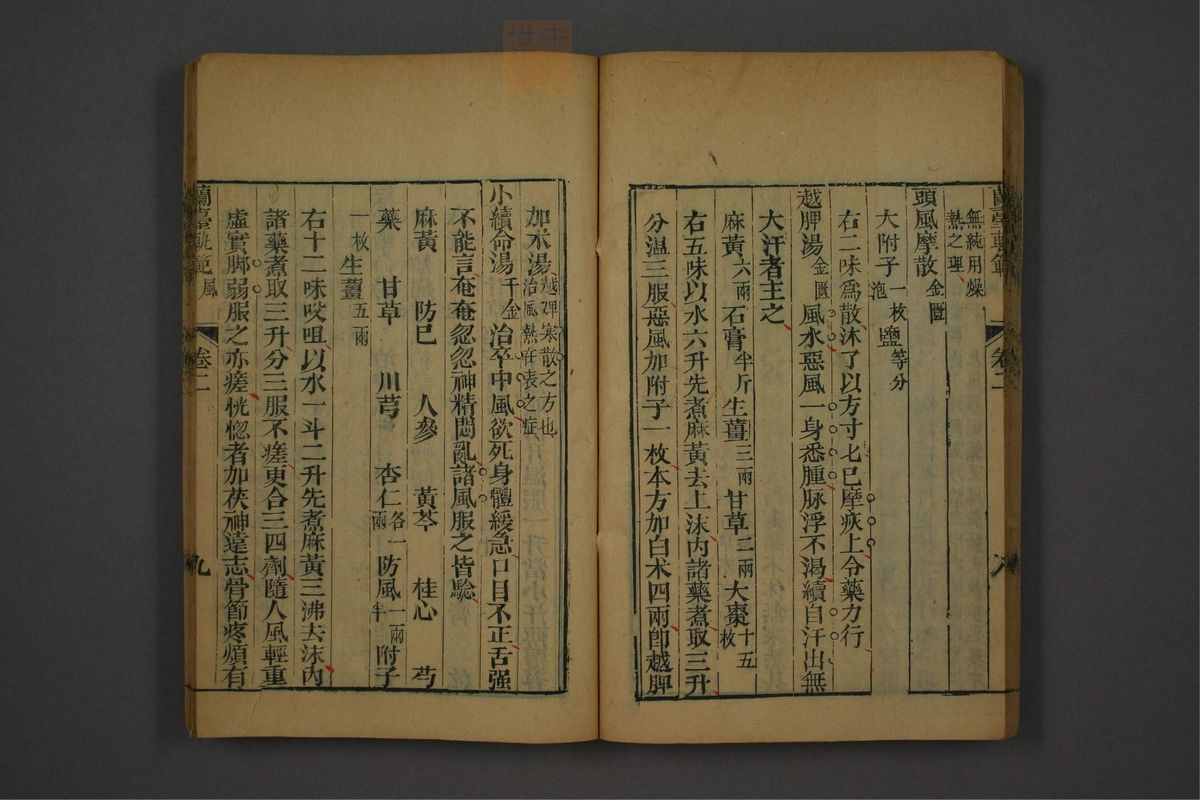 蘭臺軌範
卷二
八
無純用燥
熱之理
頭風摩散金匱
大附子一枚泡鹽等分
右二味爲散沐了以方寸匕已摩疢上令藥力行
越脾湯金匱風水惡風一身悉腫脉浮不渴續自汗出無
大汗者主之
麻黃六兩石膏半斤生薑三兩甘草二兩大棗十五枚
右五味以水六升先煮麻黃去上沫內諸藥煮取三升
分溫三服惡風加附子一枚本方加白术四兩卽越脾
加朮湯越婢寒散之方也治風熱在表之症
小續命湯千金治卒中風欲死身體緩急口目不正舌强
不能言奄奄忽忽神精悶亂諸風服之皆驗
麻黃 防巳 人參 黃芩 桂心 芍
藥 甘草 川芎 杏仁各一兩防風一兩半附子
一枚生薑五兩
右十二味㕮咀以水一斗二升先煮麻黃三沸去沫內
諸藥煮取三升分三服不瘥更合三四劑隨人風輕重
虛實脚弱服之亦瘥恍惚者加茯神遠志骨節疼煩有
蘭臺軌範風
卷二
九